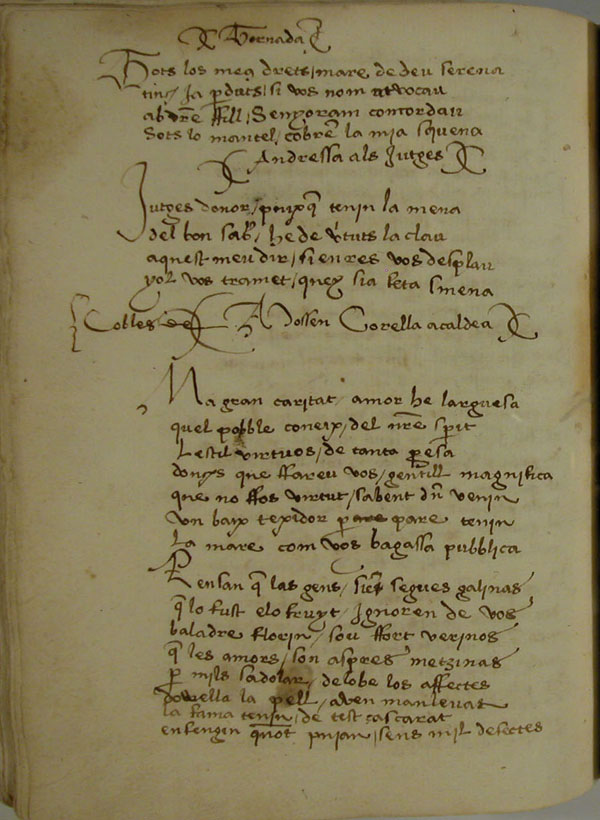 Tornada
Tots los meus drets / mare de deu serena
tinch ja perduts / si vos nom
ab vostre ffill / Senyoram concordau
Sots lo mantel / cobren la mia squena
Andressa als Jutges
Jutges donor / puixq̃ tenin la mena
del bon sab / he de v̄tuts la clau
aquest meu dir / si en res vos desplau
yol vos tramet / quey sia feta smena
Cobles de A Mossen Corella a caldesa
Na gran caritat / amor he larguesa
quel pobble coneix / del nr̃e sp̃it
Lestil virtuos / de tanta p̃esa
donchs que ffareu vos / gentill magnifica
que no ffos virtut / sabent dū venin
Vn baix texidor per pare tenin
La mare com vos bagassa pubblica
Pensan q̃ las gens / segues galinas
q̃ lo fust e lo fruyt / Ignoren de vos
baladre florin / sou ffort verinos
q̃ les amors / son aspres metzinas
p̃ mils sadolar / de lobe los affectes
dovella la pell / aven manlevat
la fama tenin / de test cascarat
en fengin pujan / sens mil defectes